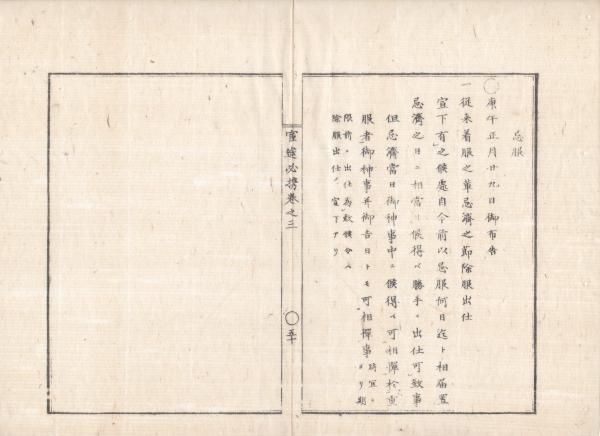 忌服
◯庚午正月廿九日御布告
一従来着服之輩忌済之節除服出仕
宣下有之候處自今前以忌服何日迄ト相届置
忌済之日ニ相當リ候得バ勝手ニ出仕可致事
但忌済當日御神事中ニ候得バ可相憚於重
服者御神事并御吉日トモ可相憚事時宜ニヨリ期
限前ニ出仕為致候分ハ
除服出仕ノ宣下アリ
官途必携巻之三
◯五十